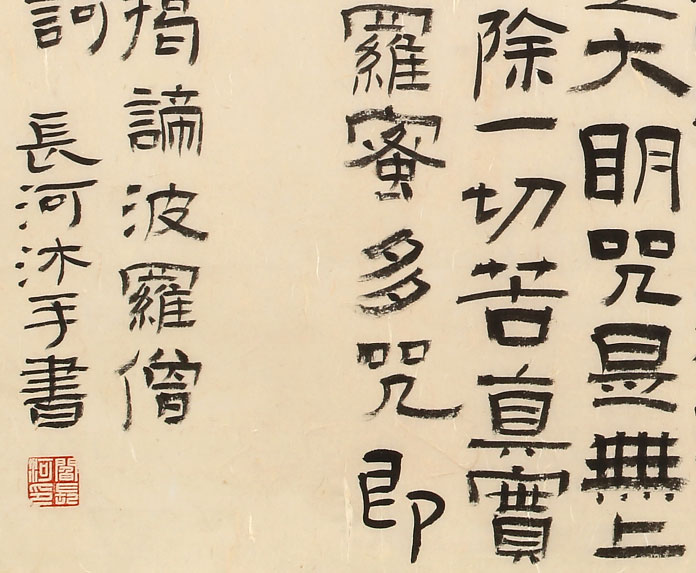 大眀咒是無上
除一切苦真實
羅蜜多咒即
揭諦波羅僧
訶
長河沐手書
閻長河印